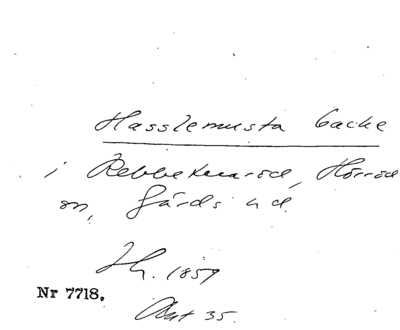 Hasslemusta backe
i Rebbetuaröd, Hörröd
sn, Gärds hd.
Th. 1859
Nr 7718.
Akt 35.